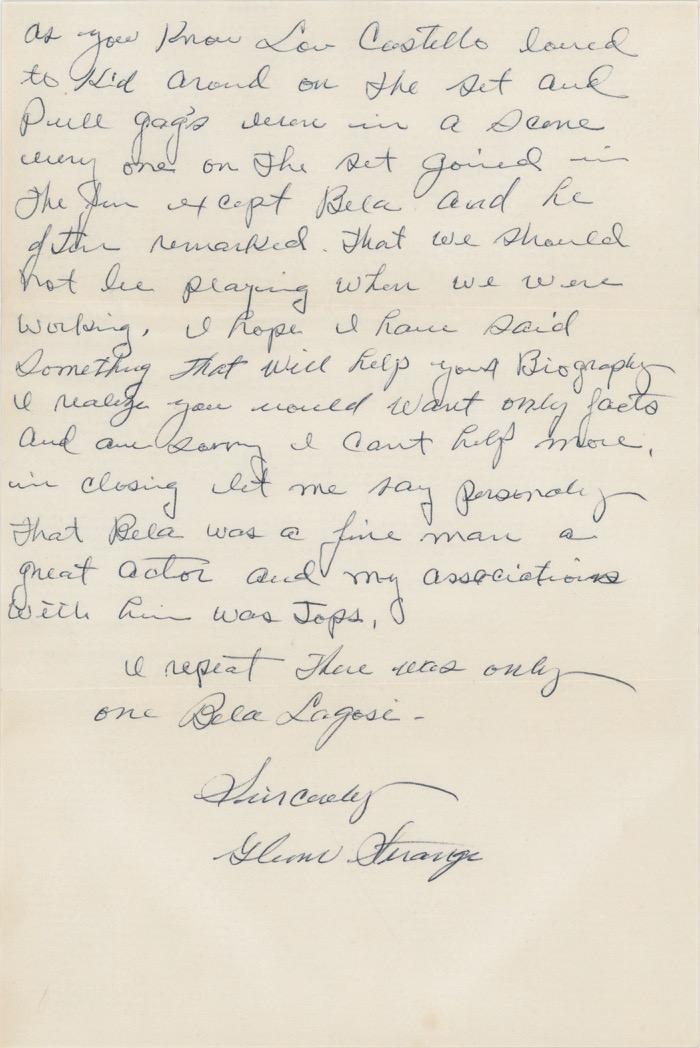 as you Know Lou Castello loved
to Kid around on the set and
Pull gag's even in a scene
every one on the set joined in
the fun except Bela and he
often remarked. That we should
not be playing when we were
working. I hope I have said
Something that will help your Biography
I realize you would want only facts
and am sorry I cant help more.
in closing let me say personaly
that Bela was a fine man a
great actor and my associations
with him was Tops,
I repeat There was only
one Bela Lagosi -
Sincerely
Glenn Strange